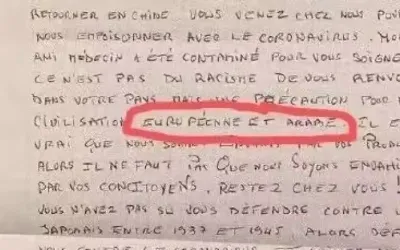 RETOURNER EN CHINE VOUS VENEZ CHEZ NOUS POU
NOUS EMPOISONNER AVEC LE CORONAVIRUS. MO
AMI MEDECIN A ÉTÉ CONTAMINÉ POUR VOUS SOIGNE
CE N'EST PAS DU RACISME DE VOUS RENVO
DANS VOTRE PAYS MAIS UNE PRÉCAUTION POUR
CIVILISATION EUROPÉENNE ET ARABE IL E
VRAI QUE NOUS SOMMES PAR VOS PRODU
ALORS IL NE FAUT PAS QUE NOUS SOYONS ENVAHI
PAR VOS CONCITOYENS. RESTEZ CHEZ VOUS !
VOUS N'AVEZ PAS SU VOUS DÉFENDRE CONTRE L
JAPONAIS ENTRE 1937 ET 1945, ALORS DÉF